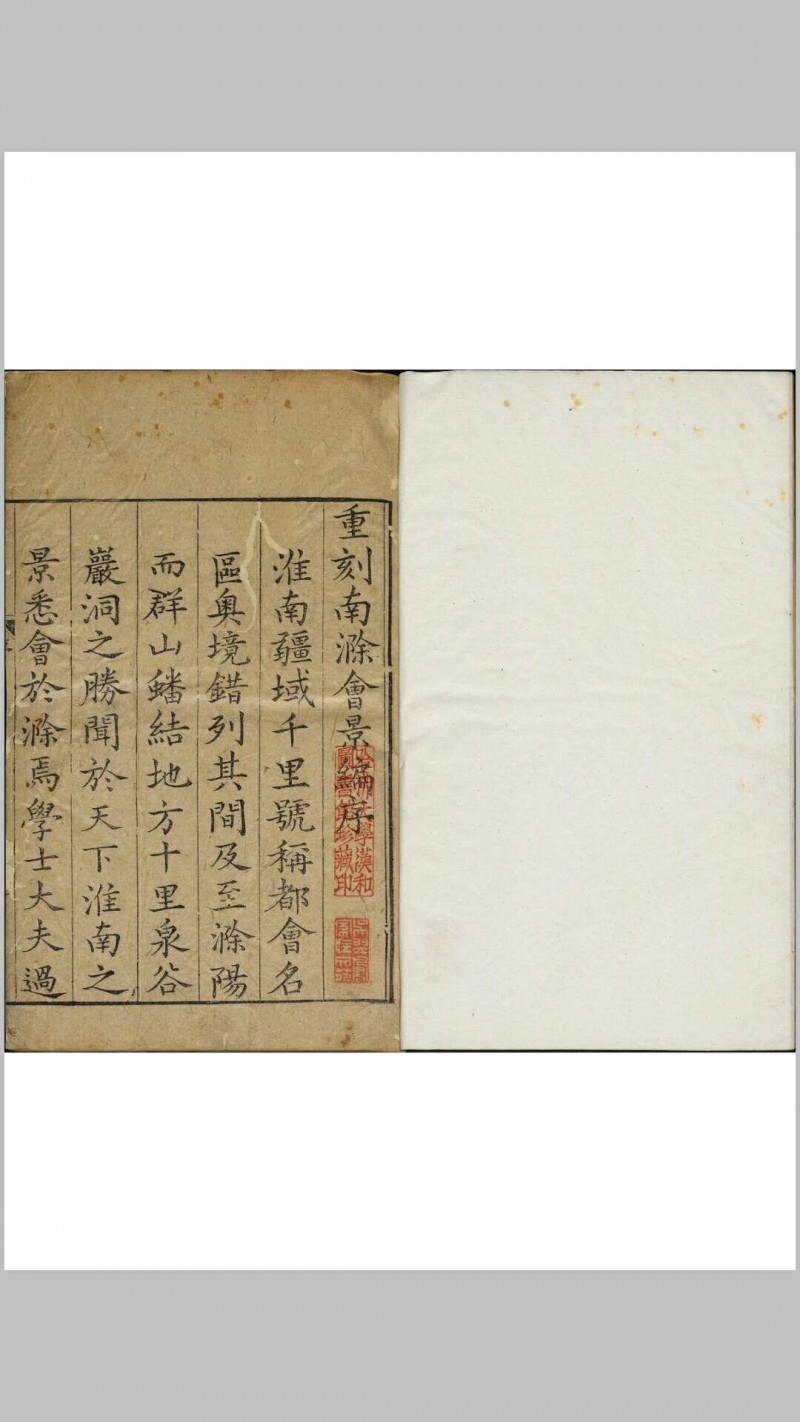 重刻南滁會景編序
淮南疆域千里號稱都會名
區奧境錯列其間及至滁陽
而群山蟠結地方十里泉谷
巖洞之勝聞於天下淮南之
景悉會於滁焉學士大夫過
哈佛大學漢和
圖書館珍藏印